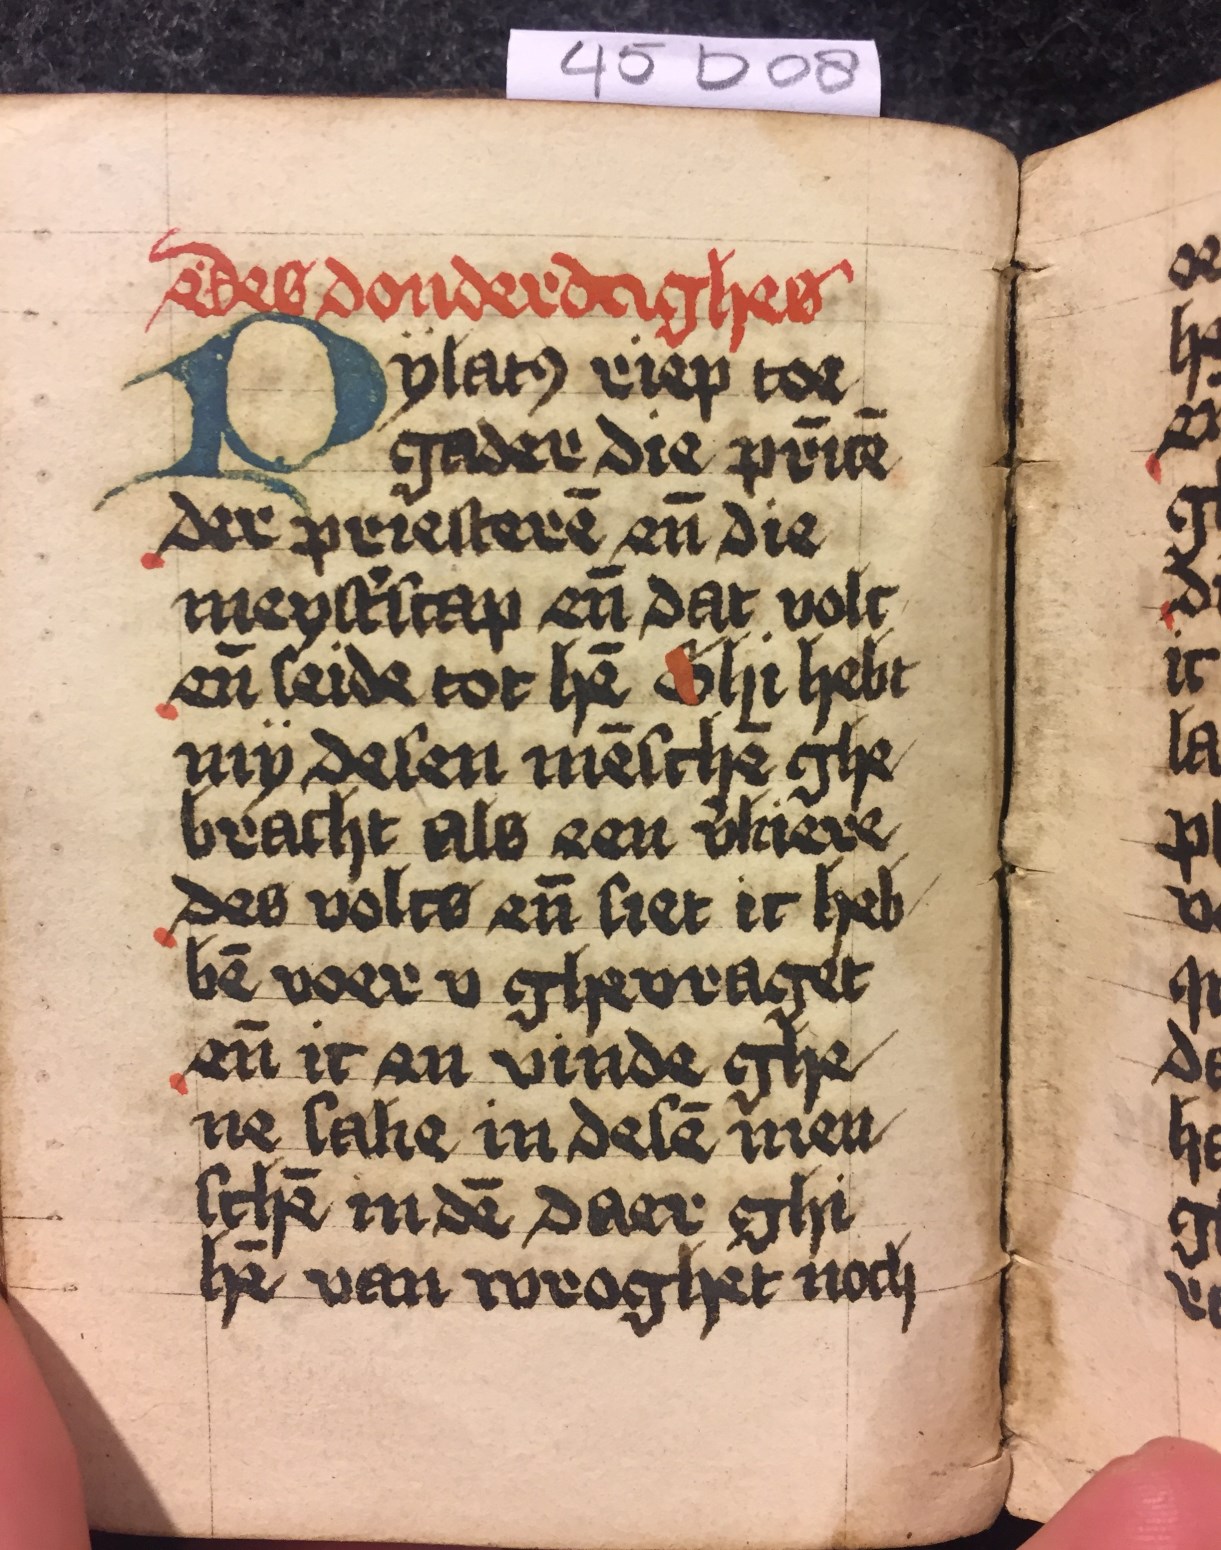 45 D 08
Des donderdaghes
Pÿlatꝯ riep toe
gader die prīcē
der priesterē en̄ die
meyst'scap en̄ dat volc
en̄ seide tot hē Ghi hebt
mÿ desen mēschē ghe
bracht als een v̄kiere
des volcs en̄ siet ic heb
bē voer v ghevraget
en̄ ic en vinde ghe
ne sake in desē men
schē in dē daer ghi
hē van wroghet noch